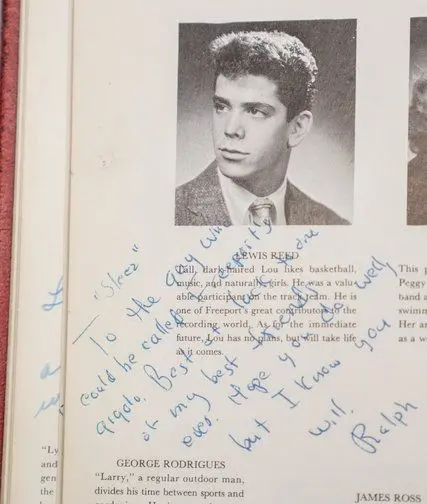 LEWIS REED
Tall, dark-haired Lou likes basketball,
music, and naturally, girls. He was a valu-
able participant on the track team. He is
one of Freeport's great contributors to the
recording world. As for the immediate
future, Lou has no plans, but will take life
as it comes.
"Sleez"
To the guy who
could be called Freeport's
gigolo. Best of luck to one
of my best friends
ever. Hope you do well
but I know you
will.
Ralph
This p
Peggy
band a
swimm
Her an
as a w
"Ly
and
gen
the
GEORGE RODRIGUES
"Larry," a regular outdoor man,
divides his time between sports and
JAMES ROSS